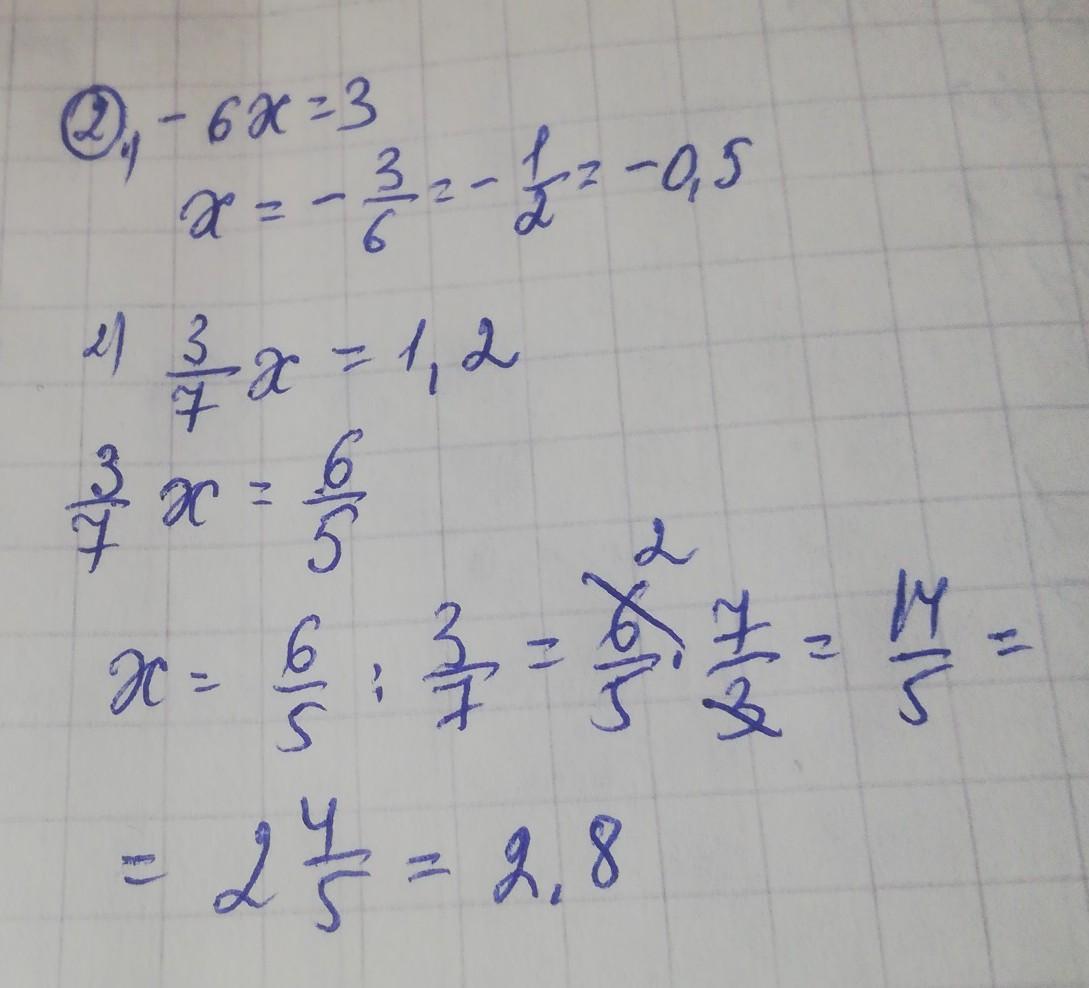 ②1) - 6x = 3
x = - 3/6 = - 1/2 = - 0,5
2) 3/7 x = 1,2
3/7 x = 6/5
2
x = 6/5 : 3/7 = 6/5 · 7/3 = 14/5 =
= 2 4/5 = 2,8